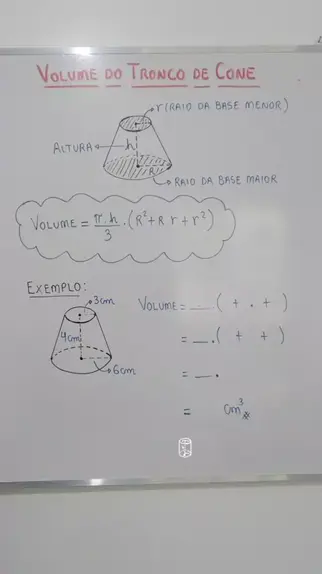 VOLUME DO TRONCO DE CONE
r (RAIO DA BASE MENOR)
ALTURA h
R
RAIO DA BASE MAIOR
VOLUME = π.h/3 . (R²+R r+r²)
EXEMPLO:
3cm
4cm
6cm
VOLUME = __ ( + . + )
= __ . ( + + )
= __ .
= cm³